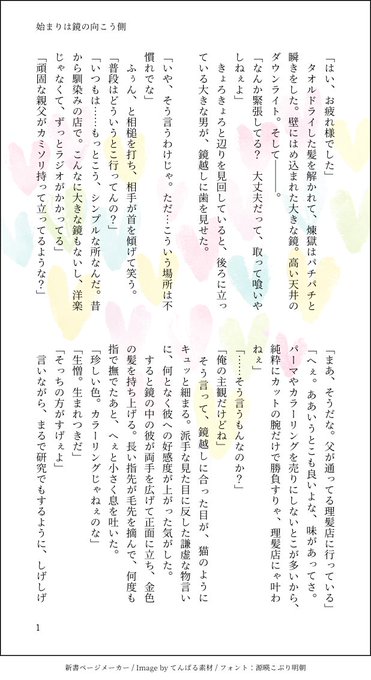 始まりは鏡の向こう側
「はい、お疲れ様でした」
　タオルドライした髪を解かれて、煉獄はパチパチと
瞬きをした。壁にはめ込まれた大きな鏡。高い天井の
ダウンライト。そして――。
「なんか緊張してる？　大丈夫だって、取って喰いや
しねぇよ」
　きょろきょろと辺りを見回していると、後ろに立っ
ている大きな男が、鏡越しに歯を見せた。
「いや、そう言うわけじゃ。ただ…こういう場所は不
慣れでな」
　ふぅん、と相槌を打ち、相手が首を傾げて笑う。
「普段はどういうとこ行ってんの？」
「いつもは……もっとこう、シンプルな所なんだ。昔
から馴染みの店で。こんなに大きな鏡もないし、洋楽
じゃなくて、ずっとラジオがかかってる」
「頑固な親父がカミソリ持って立ってるような？」
「まあ、そうだな。父が通ってる理髪店に行っている」
「へぇ。ああいうとこも良いよな、味があってさ。
パーマやカラーリングを売りにしないとこが多いから、
純粋にカットの腕だけで勝負すりゃ、理髪店にゃ叶わ
ねぇ」
「……そう言うもんなのか？」
「俺の主観だけどね」
　そう言って、鏡越しに合った目が、猫のように
キュッと細まる。派手な見た目に反した謙虚な物言い
に、何となく彼への好感度が上がった気がした。
　すると鏡の中の彼が両手を広げて正面に立ち、金色
の髪を持ち上げる。長い指先が毛先を摘んで、何度も
指で撫でたあと、へぇと小さく息を吐いた。
「珍しい色。カラーリングじゃねぇのな」
「生憎。生まれつきだ」
「そっちの方がすげぇよ」
　言いながら、まるで研究でもするように、しげしげ
1
新書ページメーカー / Image by てんぱる素材 / フォント：源暎こぶり明朝